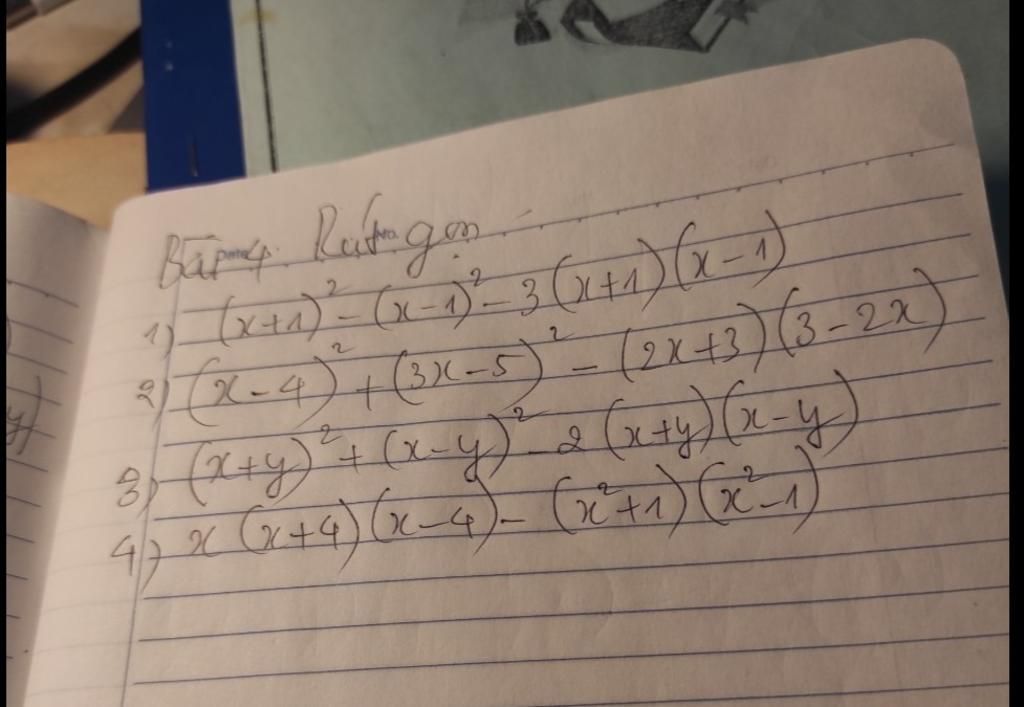 Bài 4: Rút gọn
1) (x+1)² - (x-1)² - 3(x+1)(x-1)
2) (x-4)² + (3x-5)² - (2x+3)(3-2x)
3) (x+y)² + (x-y)² - 2(x+y)(x-y)
4) x(x+4)(x-4) - (x²+1)(x²-1)